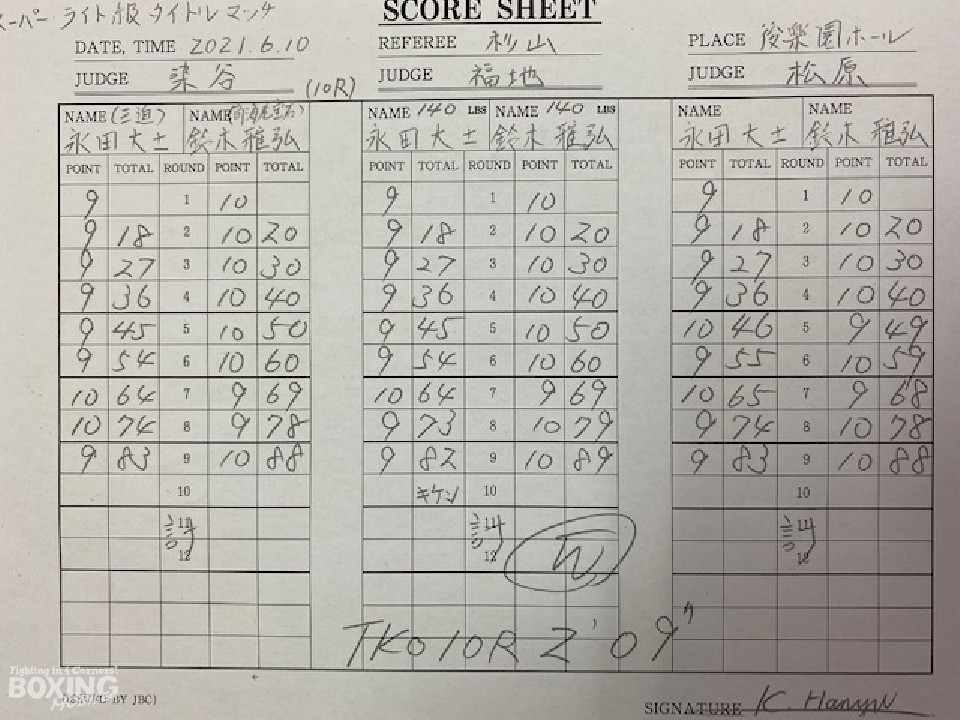 スーパーライト級タイトルマッチ
SCORE SHEET
DATE, TIME 2021.6.10 REFEREE 杉山 PLACE 後樂園ホール
JUDGE 染谷 (10R) JUDGE 福地 JUDGE 松原
NAME (三迫) NAME NAME 140 LBS NAME 140 LBS NAME NAME
永田大士 鈴木雅弘 永田大士 鈴木雅弘 永田大士 鈴木雅弘
POINT TOTAL ROUND POINT TOTAL POINT TOTAL ROUND POINT TOTAL POINT TOTAL ROUND POINT TOTAL
9 1 10 9 1 10 9 1 10
9 18 2 10 20 9 18 2 10 20 9 18 2 10 20
9 27 3 10 30 9 27 3 10 30 9 27 3 10 30
9 36 4 10 40 9 36 4 10 40 9 36 4 10 40
9 45 5 10 50 9 45 5 10 50 10 46 5 9 49
9 54 6 10 60 9 54 6 10 60 9 55 6 10 59
10 64 7 9 69 10 64 7 9 69 10 65 7 9 68
10 74 8 9 78 9 73 8 10 79 9 74 8 10 78
9 83 9 10 88 9 82 9 10 89 9 83 9 10 88
10 キケン 10 10
11 11 11
12 12 W 12
TKO 10R 2'09"
Fighting in 4 Corners!
BOXING
(ISSUED BY JBC) SIGNATURE